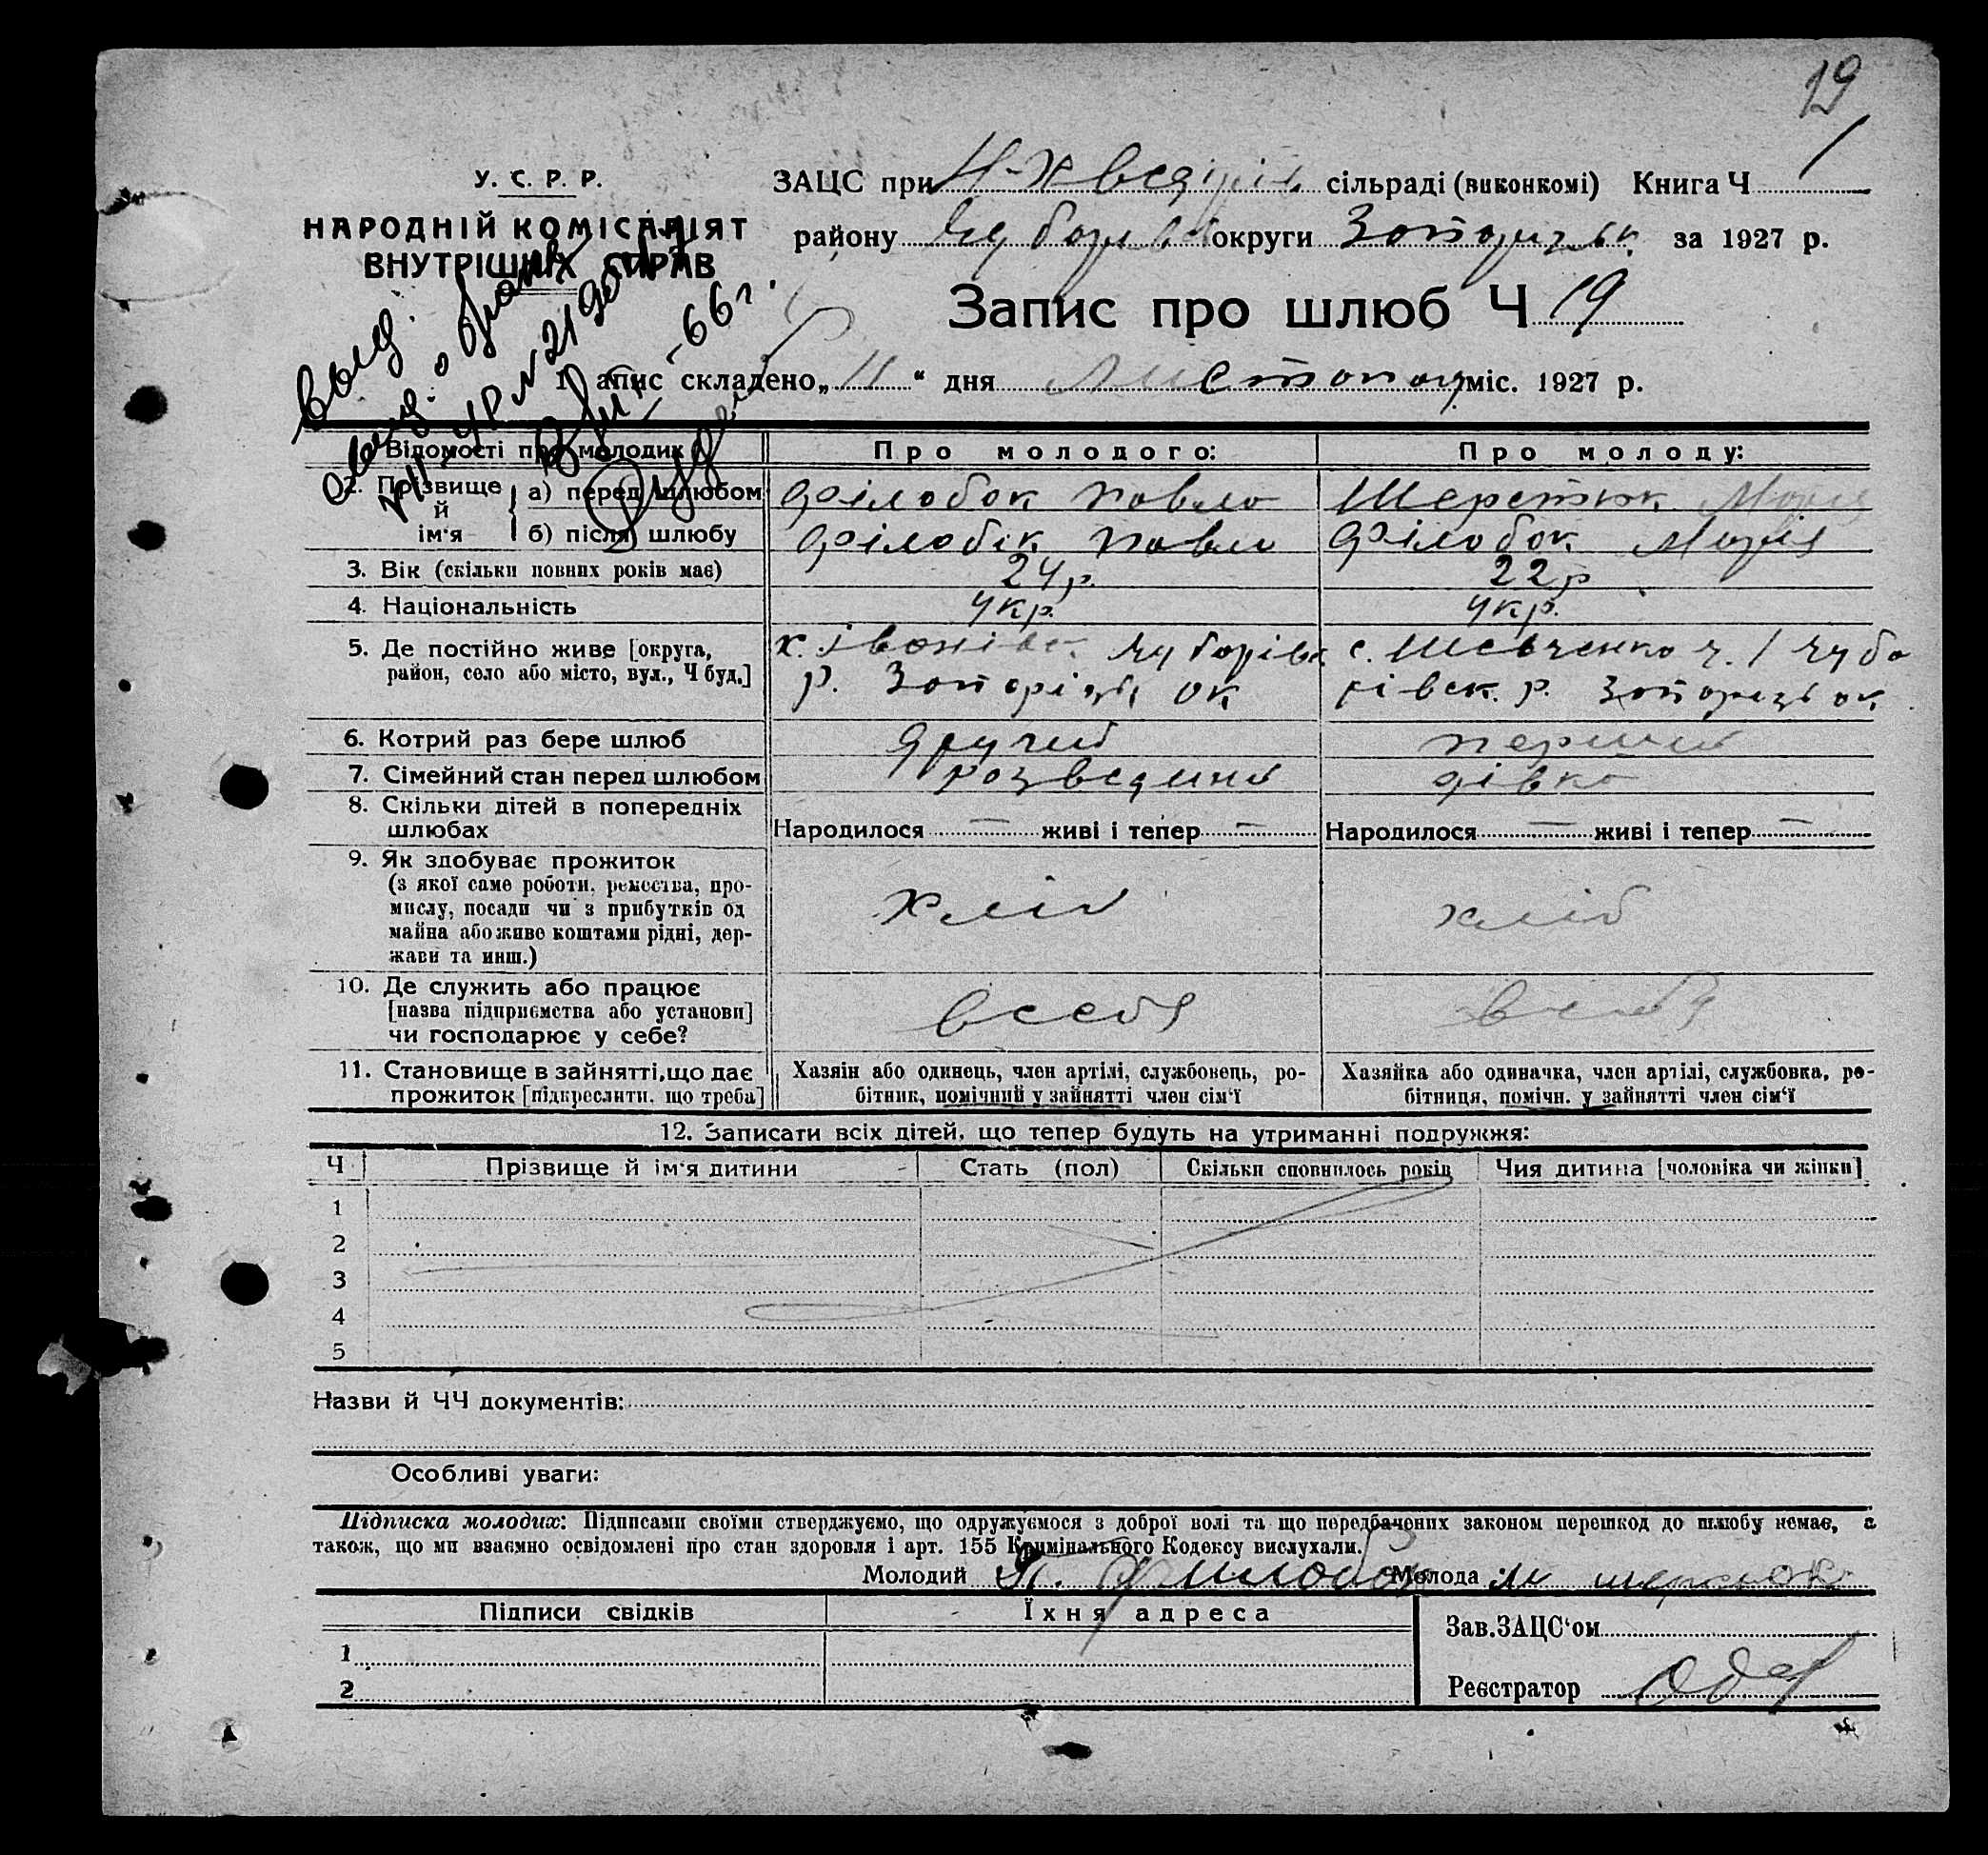 19
У. С. Р. Р.
НАРОДНІЙ КОМІСАРІЯТ
ВНУТРІШНІХ СПРАВ
ЗАЦС при сільраді (виконкомі) Книга Ч 1
району округи за 1927 р.
Запис про шлюб Ч 19
1. Запис складено „11“ дня Листопад міс. 1927 р.
Відомості про молодих
Про молодого:
Про молоду:
2. Прізвище й ім'я
а) перед шлюбом Філобок Павло Марія
б) після шлюбу Філобік Павло Філобок Марія
3. Вік (скільки повних років має) 24 р. 22 р
4. Національність укр. укр.
5. Де постійно живе [округа, район, село або місто, вул., Ч буд.]
х. Іванівка Чубарівк
р. Запорізьк ок
с. Шевченко ч. 1 Чуба
рівск. р. Запорізьк ок
6. Котрий раз бере шлюб другий перший
7. Сімейний стан перед шлюбом розведений дівка
8. Скільки дітей в попередніх шлюбах
Народилося — живі і тепер — Народилося — живі і тепер —
9. Як здобуває прожиток
(з якої саме роботи, ремества, про-
мислу, посади чи з прибутків од
майна або живе коштами рідні, дер-
жави та инш.)
хліб хліб
10. Де служить або працює
[назва підприємства або установи]
чи господарює у себе?
всебя всебя
11. Становище в зайнятті, що дає
прожиток [підкреслити, що треба]
Хазяін або одинець, член артілі, службовець, ро-
бітник, помічний у зайнятті член сім'ї
Хазяйка або одиначка, член артілі, службовка, ро-
бітниця, помічн. у зайнятті член сім'ї
12. Записати всіх дітей, що тепер будуть на утриманні подружжя:
Ч Прізвище й ім'я дитини Стать (пол) Скільки сповнилось років Чия дитина [чоловіка чи жінки]
1
2
3
4
5
Назви й ЧЧ документів:
Особливі уваги:
Підписка молодих: Підписами своїми стверджуємо, що одружуємося з доброї волі та що передбачених законом перешкод до шлюбу немає, а
також, що ми взаємно освідомлені про стан здоровля і арт. 155 Кримінального Кодексу вислухали.
Молодий П. Филобок Молода М
Підписи свідків Їхня адреса
Зав. ЗАЦС'ом
1
2
Реєстратор